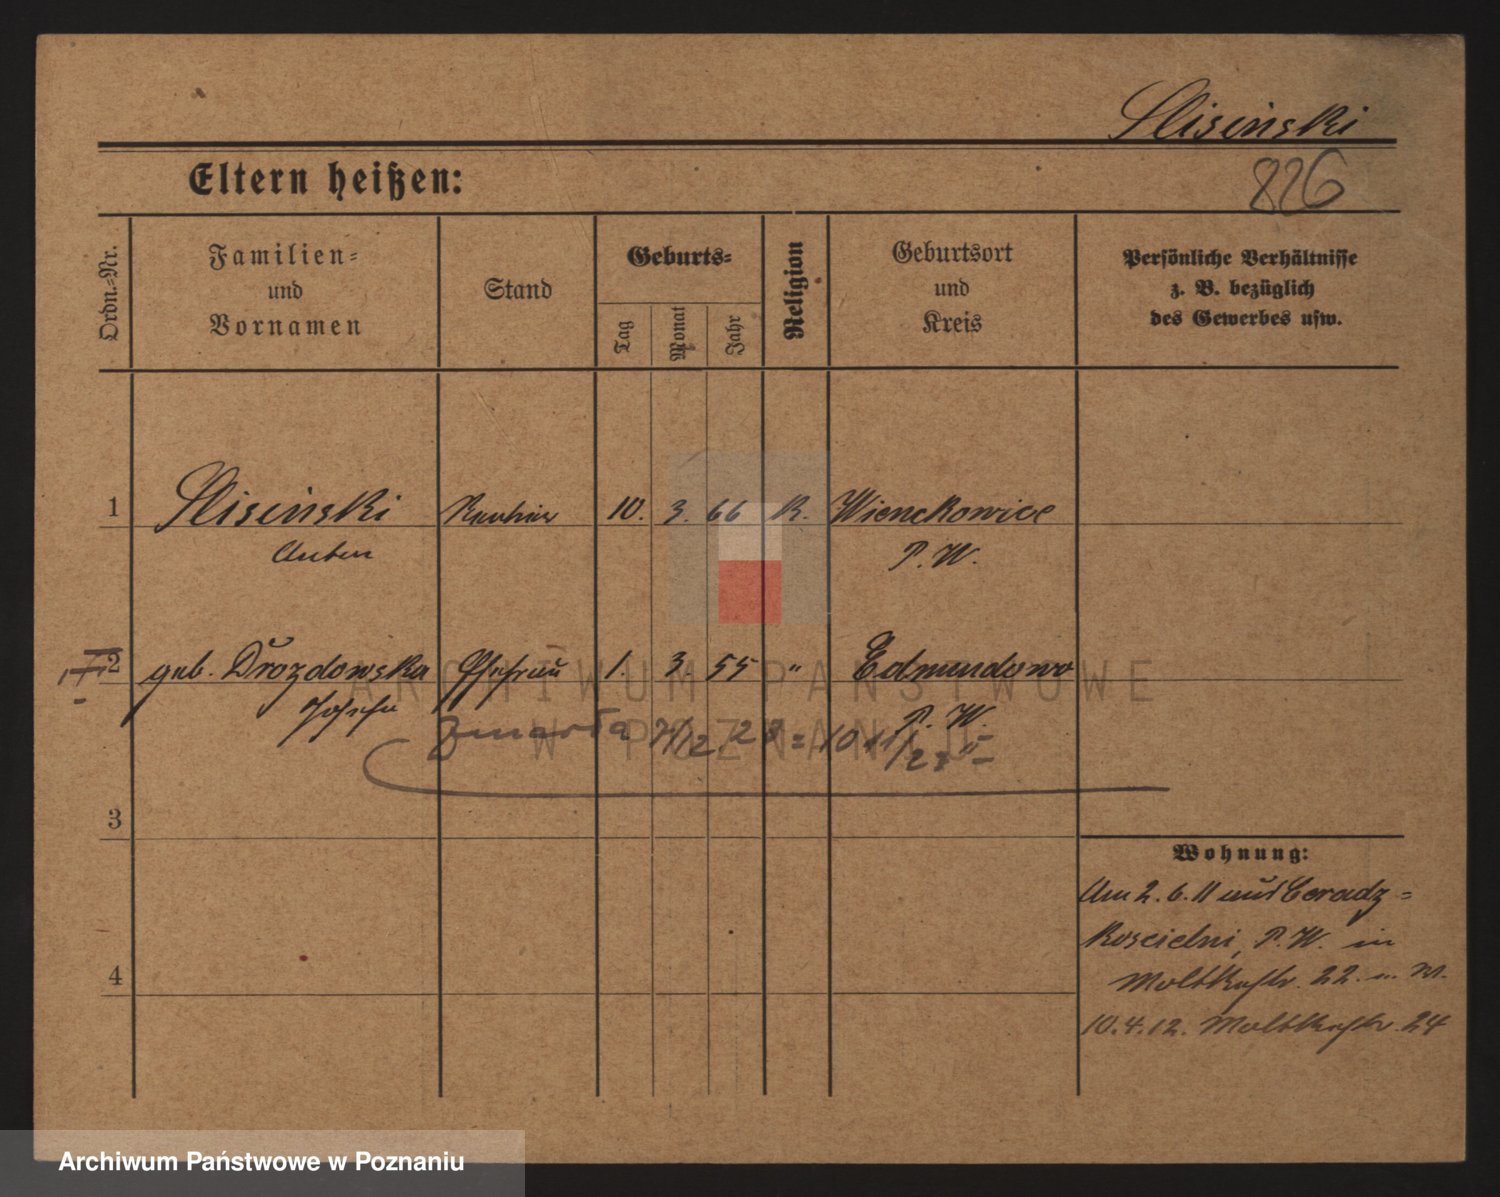 Slisinski
826
Eltern heißen:
Ordn.-Nr.
Familien-
und
Vornamen
Stand
Geburts-
Tag
Monat
Jahr
Religion
Geburtsort
und
Kreis
Persönliche Verhältnisse
z. B. bezüglich
des Gewerbes usw.
1 Slisinski Rentier 10. 3. 66 R. Wienckowice
Anton P. W.
2 geb. Drozdowska Ehefrau 1. 3. 55 " Edmundowo
Josefa P. W.
Zmarła
3
Wohnung:
Am 2. 6. 11 aus Ceradz-
Koscielni, P. W. in
Moltkestr. 22. u. W.
4
10. 4. 12. Moltkestr. 24
ARCHIWUM PAŃSTWOWE
W POZNANIU
Archiwum Państwowe w Poznaniu